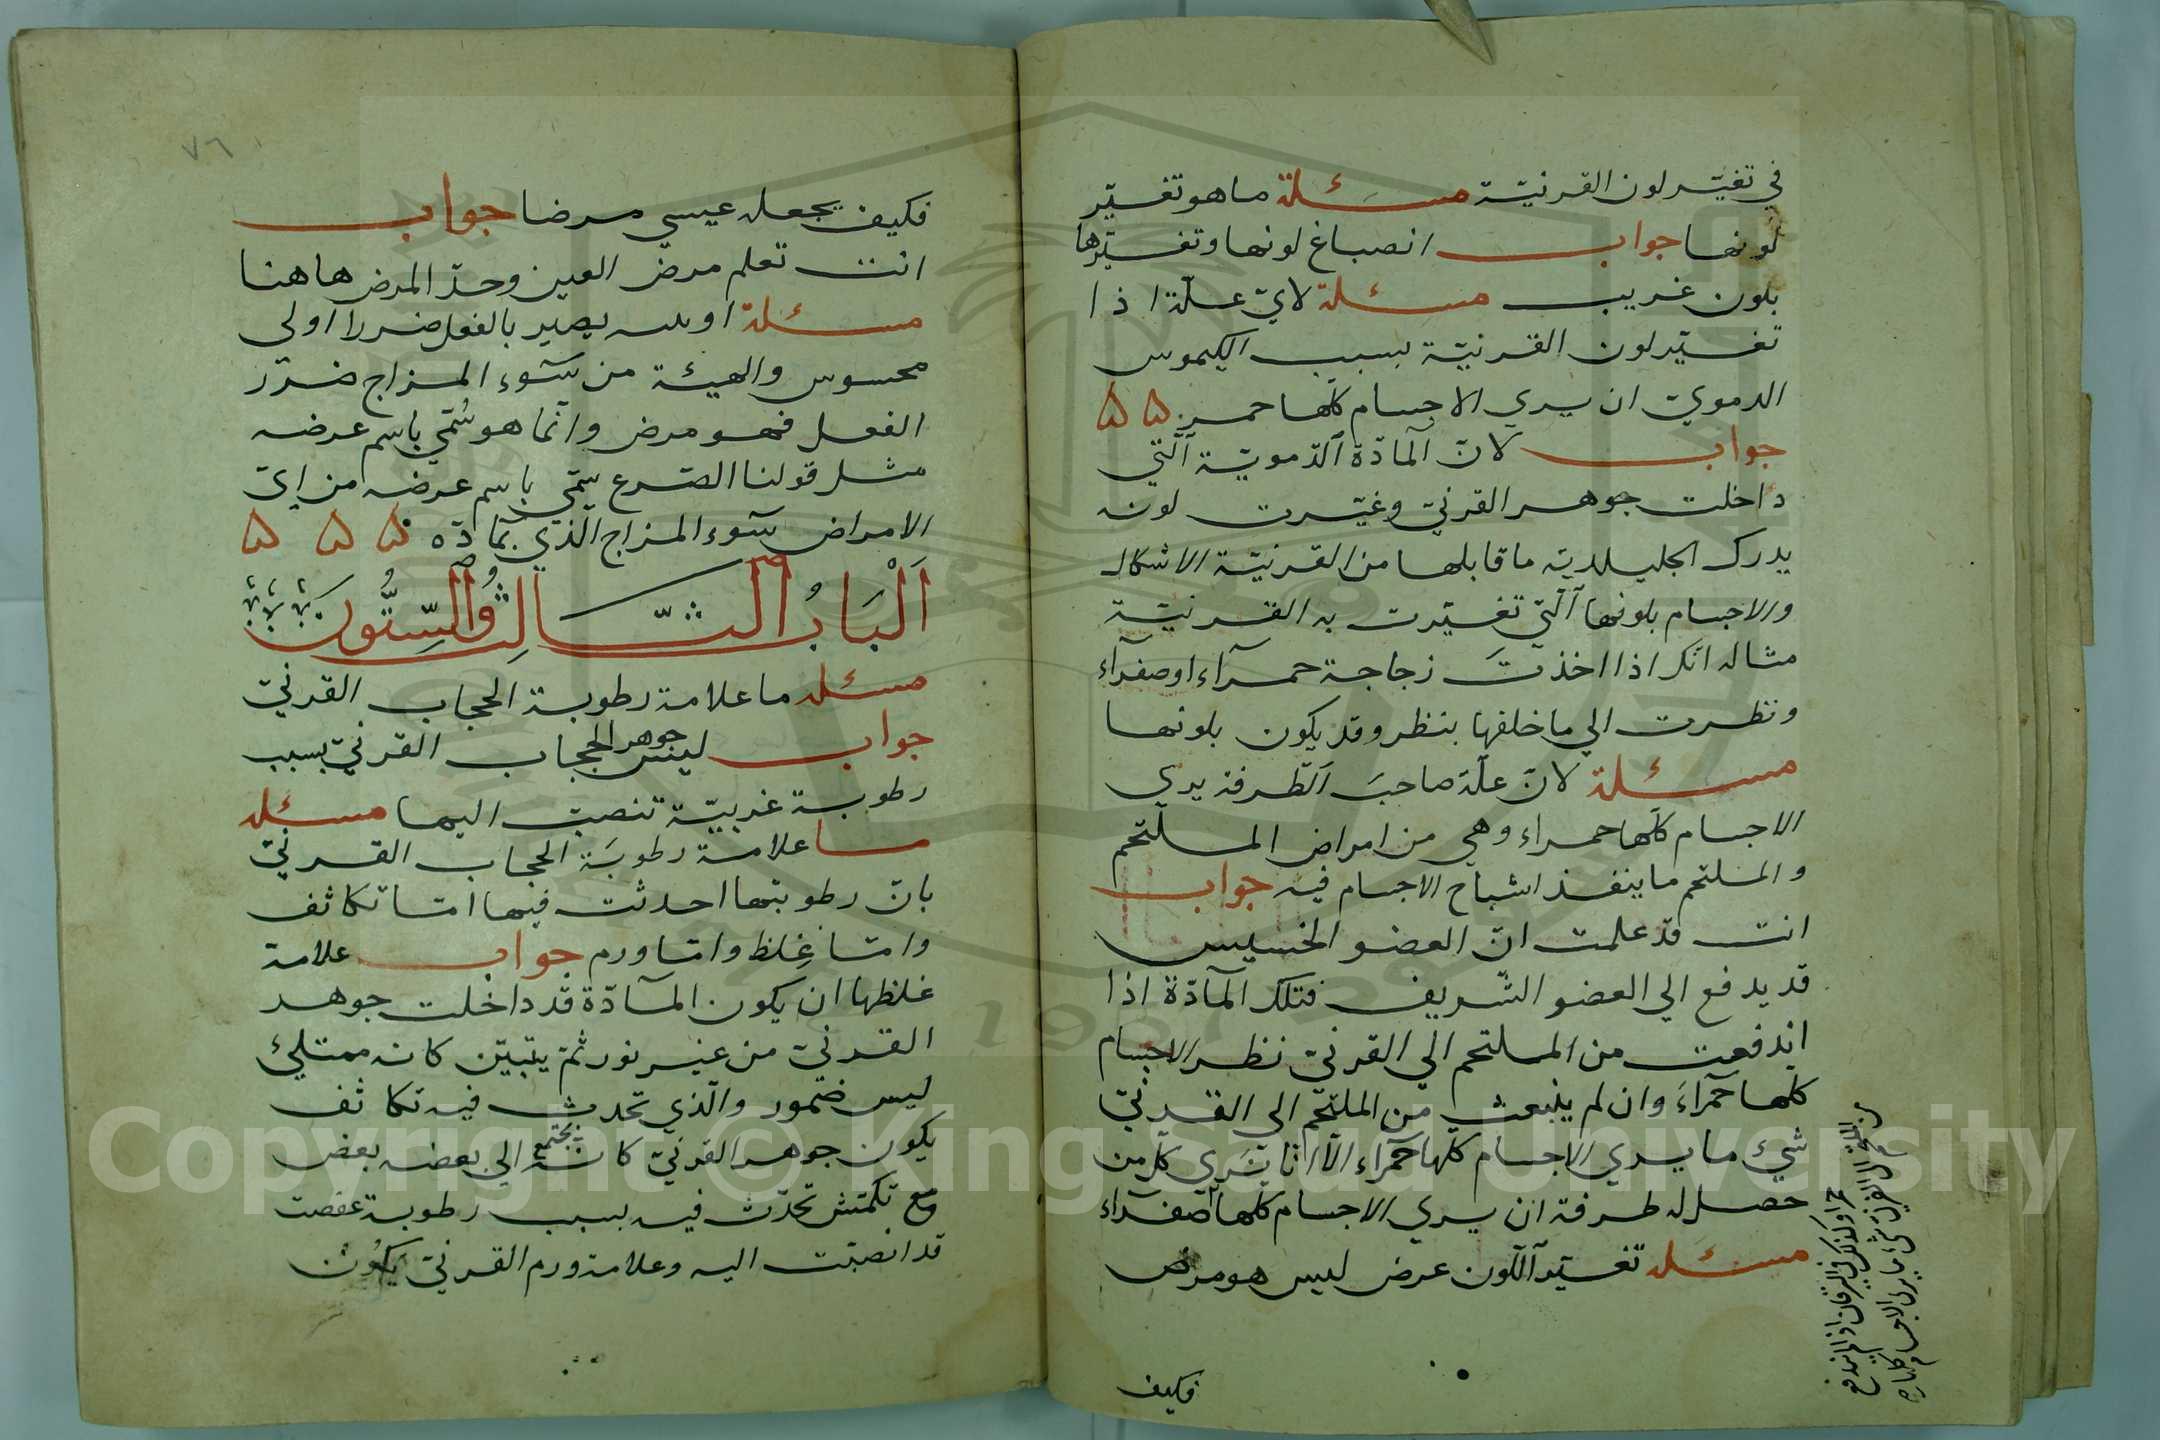 في تغيّر لون القرنيّة مسئلة ما هو تغيّر
لونها جواب انصباغ لونها وتغيّرها
بلون غريب مسئلة لايّ علّة اذا
تغيّر لون القرنيّة بسبب الكيموس
الدمويّ ان يري الاجسام كلّها حمر ۵ ۵
جواب لانّ المآدّة الدّمويّة الّتي
داخلت جوهر القرنيّ وغيّرت لونه
يدرك الجليلديه ما قابلها من القرنيّة الاشكال
والاجسام بلونها الّتي تغيّرت به القرنيّة
مثاله انّك اذا اخذتَ زجاجة حمرآء او صفرآء
ونظرت الي ما خلفها بنظر وقد يكون بلونها
مسئلة لانّ علّة صاحبَ الطّرفة يري
الاجسام كلّها حمراء وهي من امراض الملتحم
والملتحم ما ينفذ اشباح الاجسام فيه جواب
انت قد علمت انّ العضو الخسيس
قد يدفع الي العضو الشّريف فتلك المآدّة اذا
اندفعت من الملتحم الي القرنيّ نظر الاجسام
كلها حمرآءَ وان لم ينبعث من الملتحم الي القرنيّ
شيء ما يري الاجسام كلّها حمرآء الّا انّا نري كلّ من
حصل له طرفة ان يري الاجسام كلها صفرآء
مسئله تغيّر اللّون عرض ليس هو مرض
فكيف
٧٦
فكيف يجعله عيسي مرضا جواب
انت تعلم مرض العين وحدّ المرض هاهنا
مسئلة يصير بالفعل ضررا اولي
محسوس والهيئة من سوء المزاج ضرّر
الفعل فهو مرض وانّما هو سُمّي باسم عرضه
مثل قولنا الصّرع سمّي باسم عرضه من ايّ
الامراض سوء المزاج الّذي بمآدّه ۵ ۵ ۵
اَلْبَابُ الثَّالِثُ وَالسِّتُّون
مسئله ما علامة رطوبة الحجاب القرنيّ
جواب لين جوهر الحجاب القرنيّ بسبب
رطوبة غريبيّة تنصبّ اليها مسئله
ما علامة رطوبَة الحجاب القرنيّ
بانّ رطوبتها احدثت فيها امّا تكاثف
وامّا غِلظ وامّا ورم جواب علامة
غلظها ان يكون المآدّة قد داخلت جوهر
القرنيّ من غير نور ثمّ يتبيّن كانه ممتليء
ليس ضمور والّذي تحدث فيه تكاثف
يكون جوهر القرنيّ كانه يجتمع الي بعضه بعض
مع تكمّش تحدّث فيه بسبب رطوبة عفصت
قد انصبّت اليه وعلامة ورم القرنيّ يكون
Copyright © King Saud University
1957